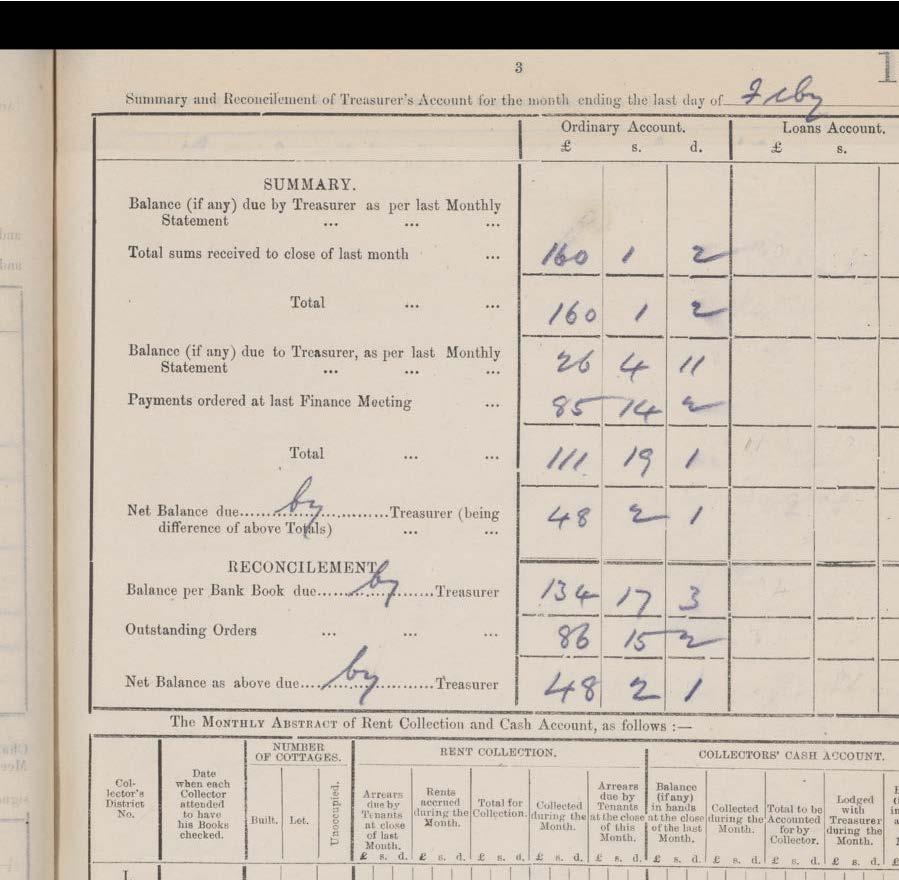 3
Summary and Reconcilement of Treasurer's Account for the month ending the last day of Feby
Ordinary Account. Loans Account.
£ s. d. £ s.
SUMMARY.
Balance (if any) due by Treasurer as per last Monthly
Statement ... ... ...
Total sums received to close of last month ... 160 1 2
Total ... ... 160 1 2
Balance (if any) due to Treasurer, as per last Monthly
Statement ... ... ... 26 4 11
Payments ordered at last Finance Meeting ... 85 14 2
Total ... ... 111 19 1
Net Balance due......by......Treasurer (being
difference of above Totals) ... ... 48 2 1
RECONCILEMENT
Balance per Bank Book due......by......Treasurer 134 17 3
Outstanding Orders ... ... ... 86 15 2
Net Balance as above due......by......Treasurer 48 2 1
The MONTHLY ABSTRACT of Rent Collection and Cash Account, as follows :—
Collector's District No.
Date when each Collector attended to have his Books checked.
NUMBER OF COTTAGES.
Built. Let. Unoccupied.
RENT COLLECTION.
Arrears due by Tenants at close of last Month.
Rents accrued during the Month.
Total for Collection.
Collected during the Month.
Arrears due by Tenants at the close of this Month.
COLLECTORS' CASH ACCOUNT.
Balance (if any) in hands at the close of the last Month.
Collected during the Month.
Total to be Accounted for by Collector.
Lodged with Treasurer during the Month.
£ s. d. £ s. d. £ s. d. £ s. d. £ s. d. £ s. d. £ s. d. £ s. d. £ s. d.
I.